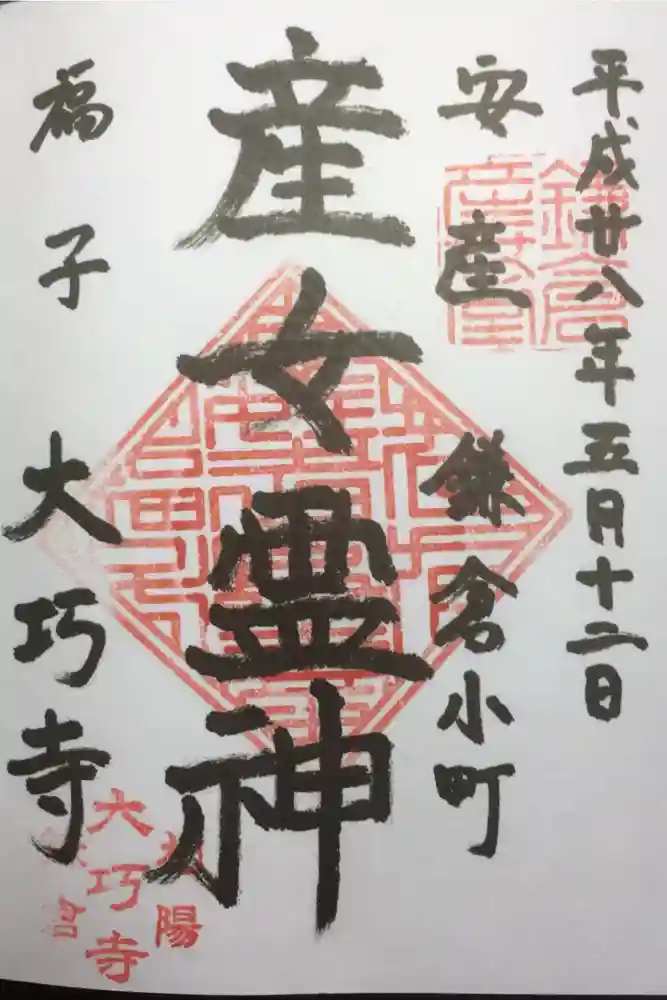 平成廿八年五月十二日
安産 鎌倉小町
産女霊神
福子 大巧寺
鎌倉
大巧寺
陽